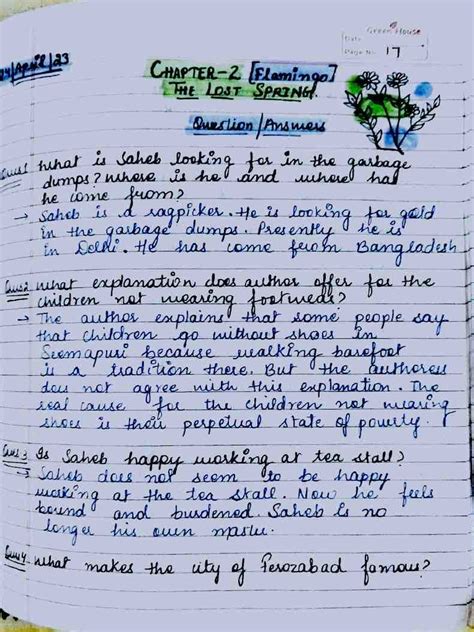 Green House
Date
Page No. 17
24/April/23
CHAPTER-2 [Flamingo]
THE LOST SPRING
Question/Answers
Ques1 What is Saheb looking for in the garbage
dumps? Where is he and where has
he come from?
→ Saheb is a ragpicker. He is looking for gold
in the garbage dumps. Presently he is
in Delhi. He has come from Bangladesh
Ques2 What explanation does author offer for the
children not wearing footwears?
→ The author explains that some people say
that children go without shoes in
Seemapuri because walking barefoot
is a tradition there. But the authoress
does not agree with this explanation. The
real cause for the children not wearing
shoes is their perpetual state of poverty.
Ques3 Is Saheb happy working at tea stall?
→ Saheb does not seem to be happy
working at the tea stall. Now he feels
bound and burdened. Saheb is no
longer his own master.
Ques4 What makes the city of Ferozabad famous?